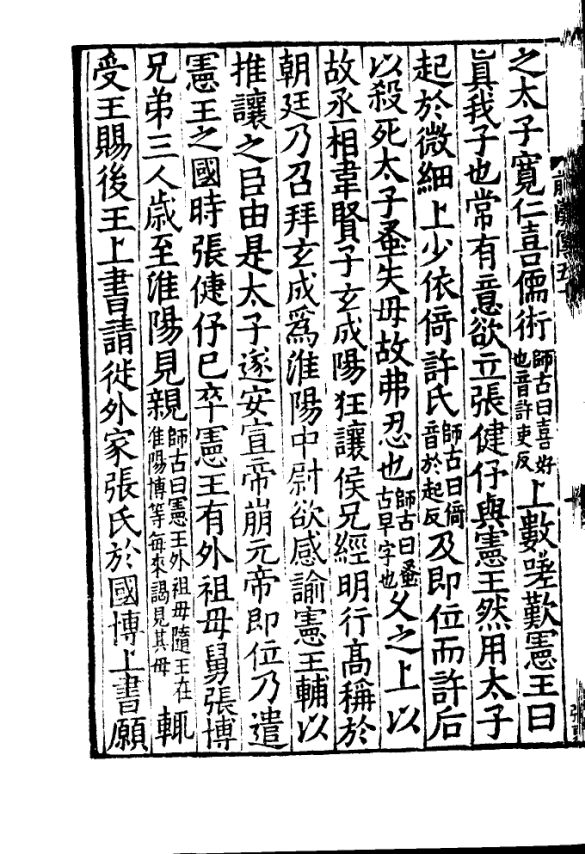 之太子寬仁喜儒術師古曰喜好也音許吏反上數嗟歎憲王曰
眞我子也常有意欲立張倢伃與憲王然用太子
起於微細上少依倚許氏師古曰倚音於起反及即位而許后
以殺死太子蚤失母故弗忍也師古曰蚤古早字也久之上以
故丞相韋賢子玄成陽狂讓侯兄經明行髙稱於
朝廷乃召拜玄成爲淮陽中尉欲感諭憲王輔以
推讓之臣由是太子遂安宣帝崩元帝即位乃遣
憲王之國時張倢伃已卒憲王有外祖母舅張博
兄弟三人歳至淮陽見親師古曰憲王外祖母隨王在淮陽博等每來謁見其母輒
受王賜後王上書請徙外家張氏於國博上書願